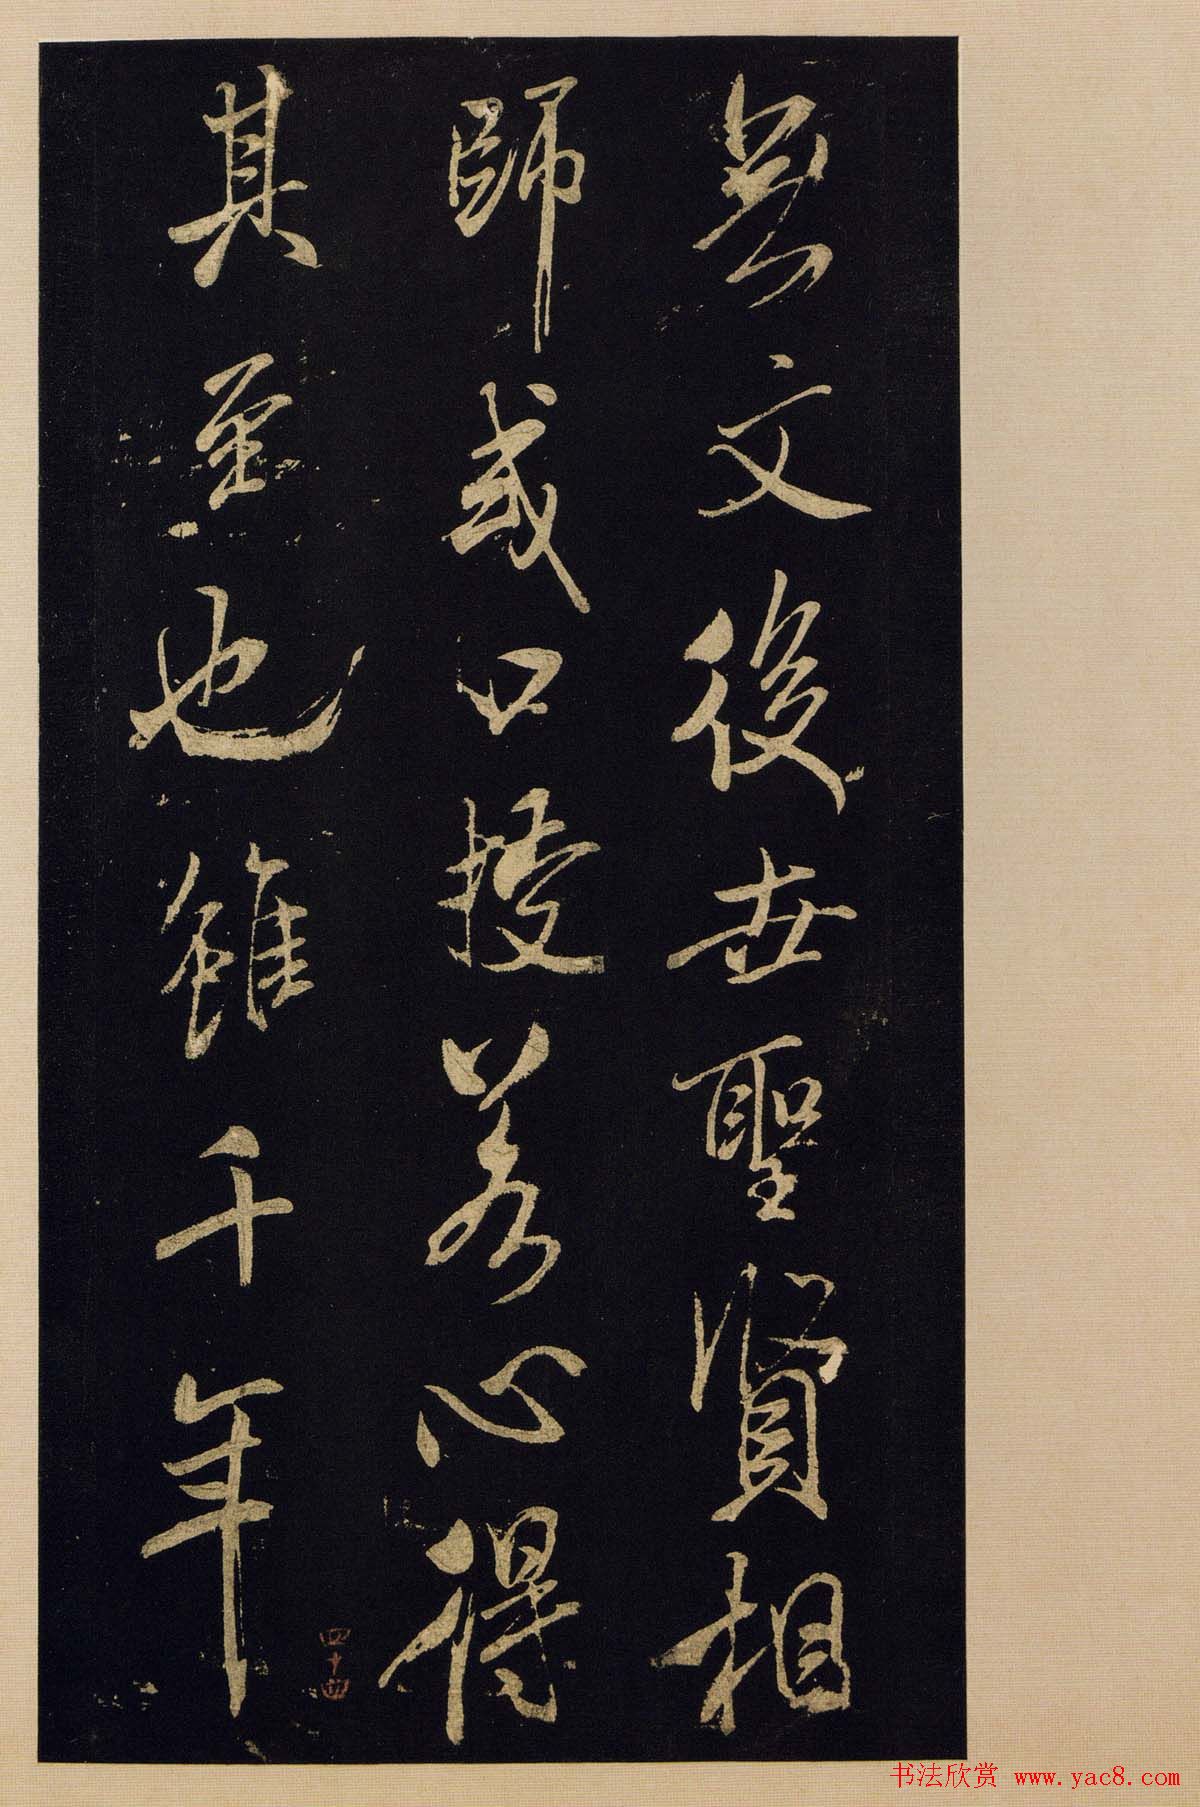 文後世聖賢相
師或口授若心得
其至也雖千年
四十四
书法欣赏 www.yac8.com